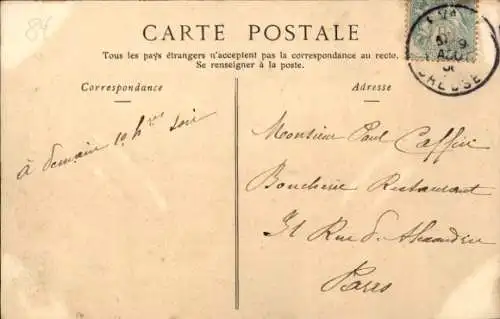 84
CARTE POSTALE
Tous les pays étrangers n'acceptent pas la correspondance au recto.
Se renseigner à la poste.
Correspondance
Adresse
à demain 10 h res soir
Monsieur Paul Caffin
Boucherie Restaurant
31 Rue d'Alexandrie
Paris
CREUSE